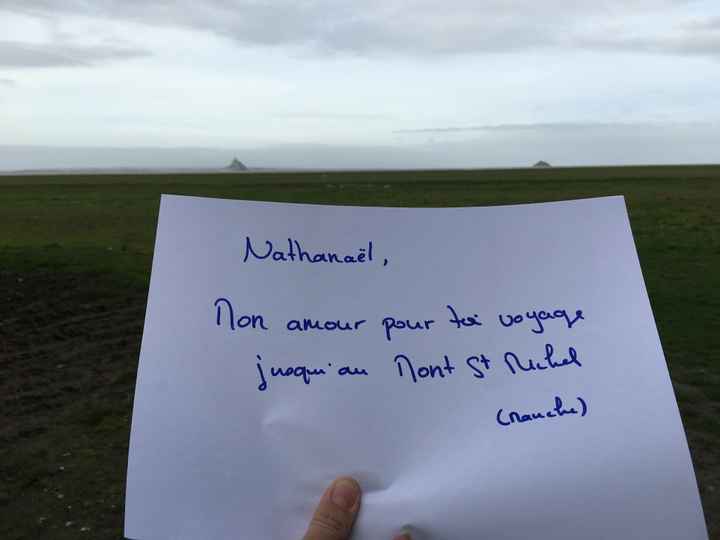 Nathanaël,
Mon amour pour toi voyage
jusqu'au Mont St Michel
(Manche)